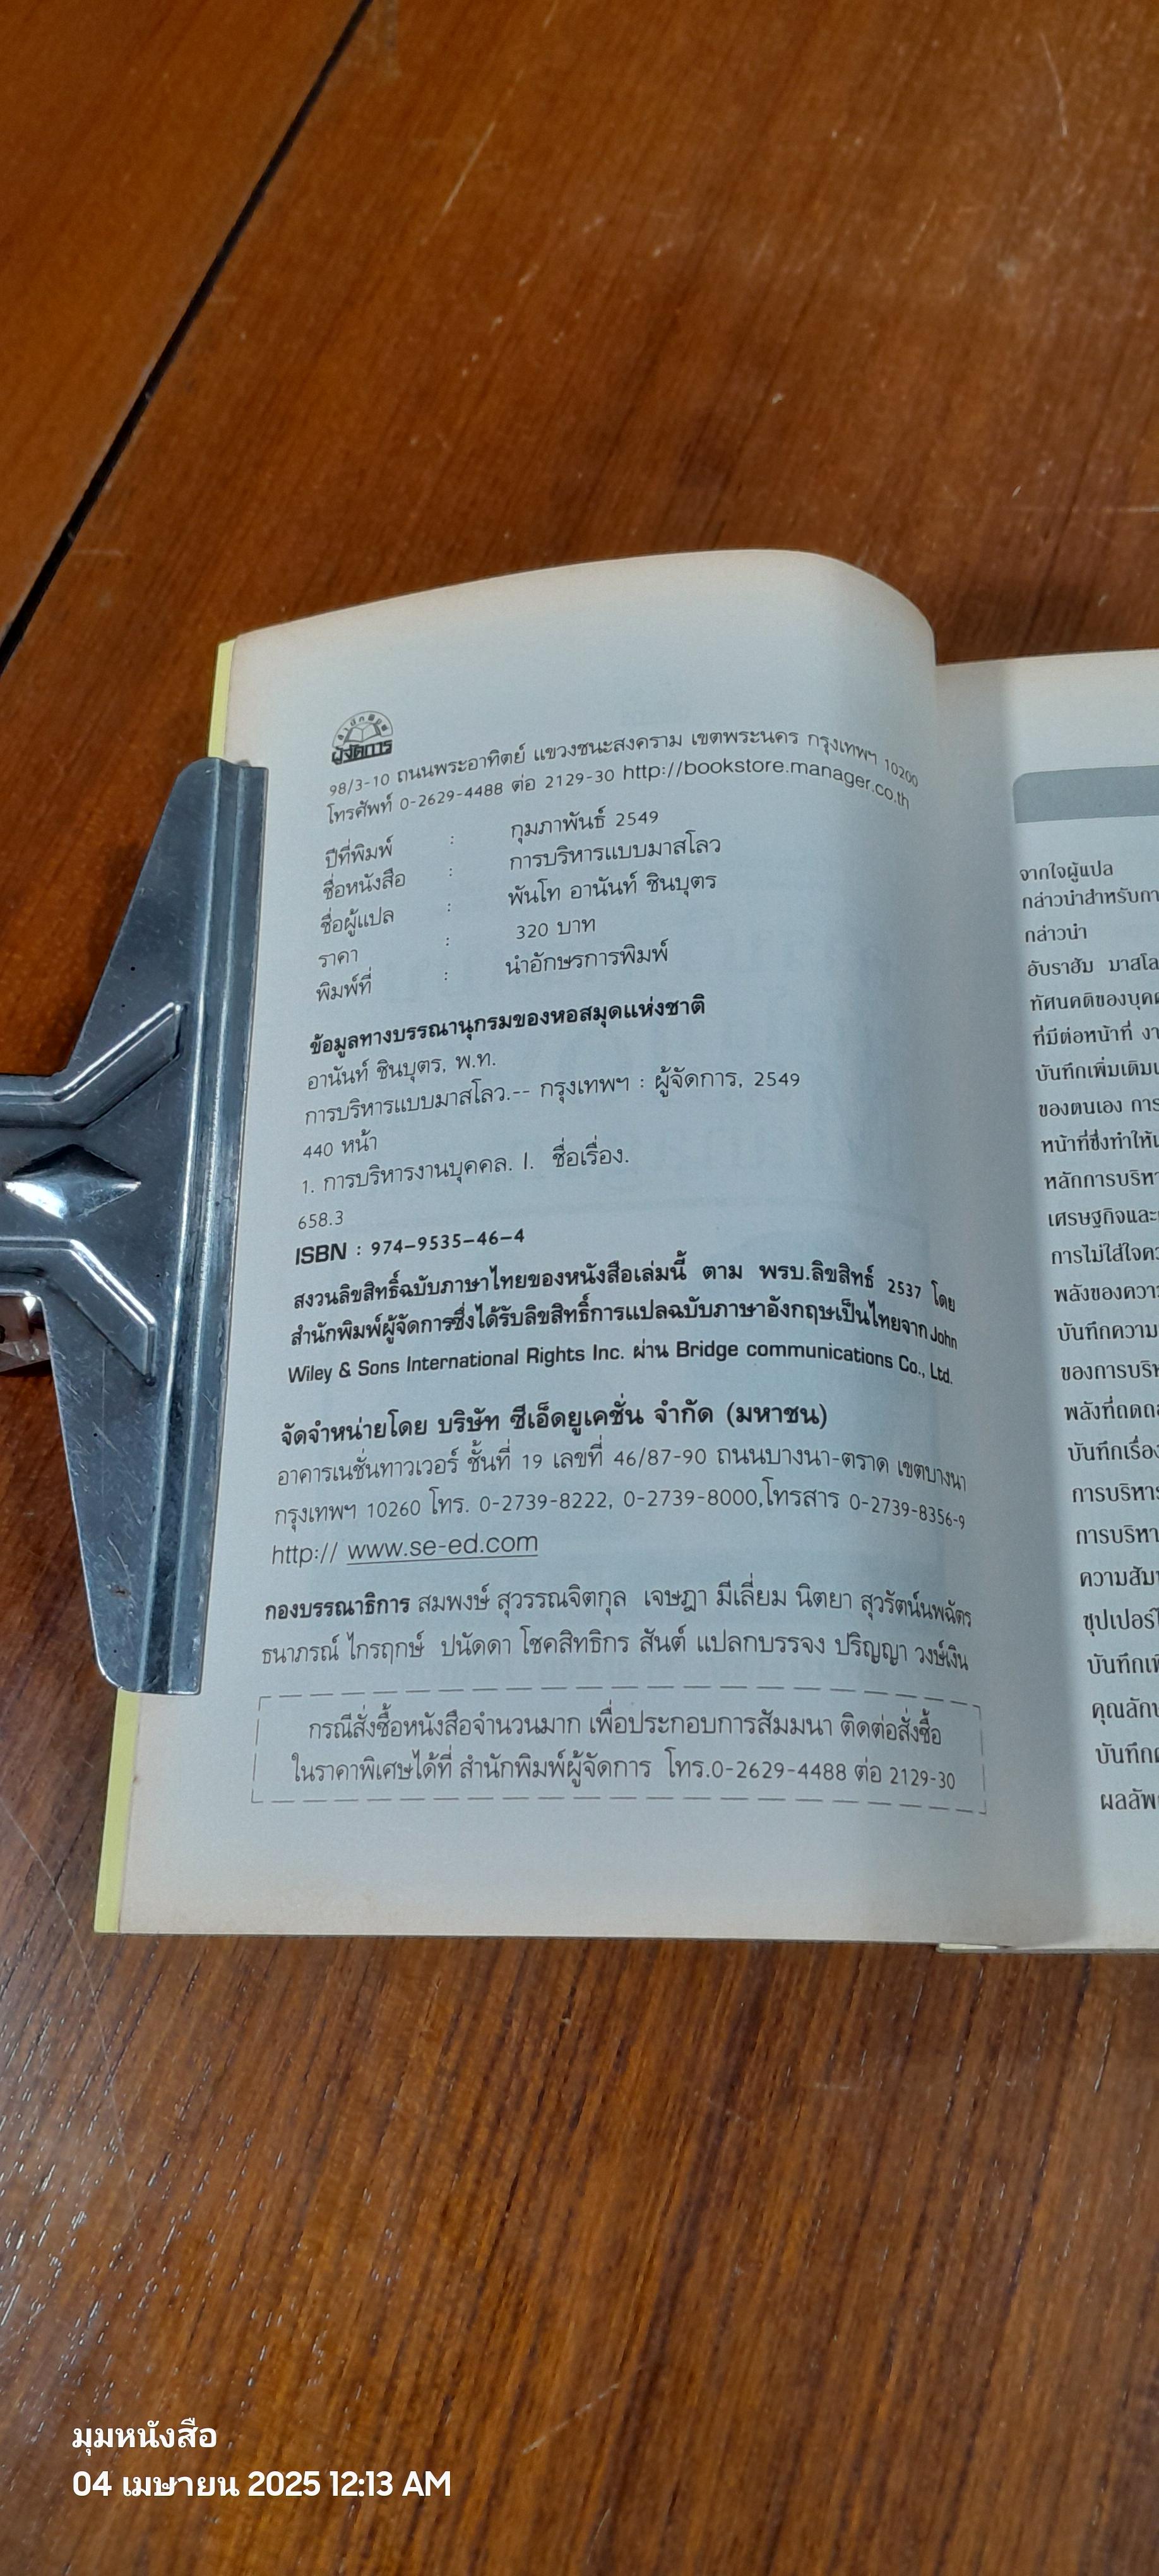 สำนักพิมพ์
ผู้จัดการ
98/3-10 ถนนพระอาทิตย์ แขวงชนะสงคราม เขตพระนคร กรุงเทพฯ 10200
โทรศัพท์ 0-2629-4488 ต่อ 2129-30 http://bookstore.manager.co.th
ปีที่พิมพ์ : กุมภาพันธ์ 2549
ชื่อหนังสือ : การบริหารแบบมาสโลว
ชื่อผู้แปล : พันโท อานันท์ ชินบุตร
ราคา : 320 บาท
พิมพ์ที่ : นำอักษรการพิมพ์
ข้อมูลทางบรรณานุกรมของหอสมุดแห่งชาติ
อานันท์ ชินบุตร, พ.ท.
การบริหารแบบมาสโลว.-- กรุงเทพฯ : ผู้จัดการ, 2549
440 หน้า
1. การบริหารงานบุคคล. I. ชื่อเรื่อง.
658.3
ISBN : 974-9535-46-4
สงวนลิขสิทธิ์ฉบับภาษาไทยของหนังสือเล่มนี้ ตาม พรบ.ลิขสิทธ์ 2537 โดย
สำนักพิมพ์ผู้จัดการซึ่งได้รับลิขสิทธิ์การแปลฉบับภาษาอังกฤษเป็นไทยจาก John
Wiley & Sons International Rights Inc. ผ่าน Bridge communications Co., Ltd.
จัดจำหน่ายโดย บริษัท ซีเอ็ดยูเคชั่น จำกัด (มหาชน)
อาคารเนชั่นทาวเวอร์ ชั้นที่ 19 เลขที่ 46/87-90 ถนนบางนา-ตราด เขตบางนา
กรุงเทพฯ 10260 โทร. 0-2739-8222, 0-2739-8000,โทรสาร 0-2739-8356-9
http:// www.se-ed.com
กองบรรณาธิการ สมพงษ์ สุวรรณจิตกุล เจษฎา มีเลี่ยม นิตยา สุวรัตน์นพฉัตร
ธนาภรณ์ ไกรฤกษ์ ปนัดดา โชคสิทธิกร สันต์ แปลกบรรจง ปริญญา วงษ์เงิน
กรณีสั่งซื้อหนังสือจำนวนมาก เพื่อประกอบการสัมมนา ติดต่อสั่งซื้อ
ในราคาพิเศษได้ที่ สำนักพิมพ์ผู้จัดการ โทร.0-2629-4488 ต่อ 2129-30
จากใจผู้แปล
กล่าวนำสำหรับกา
กล่าวนำ
อับราฮัม มาสโล
ทัศนคติของบุคค
ที่มีต่อหน้าที่ งา
บันทึกเพิ่มเติมเ
ของตนเอง การ
หน้าที่ซึ่งทำให้เ
หลักการบริหา
เศรษฐกิจและ
การไม่ใส่ใจคว
พลังของความ
บันทึกความ
ของการบริห
พลังที่ถดถอ
บันทึกเรื่อง
การบริหาร
การบริหา
ความสัม
ซุปเปอร์ไ
บันทึกเพิ
คุณลักษ
บันทึก
ผลลัพ
มุมหนังสือ
04 เมษายน 2025 12:13 AM